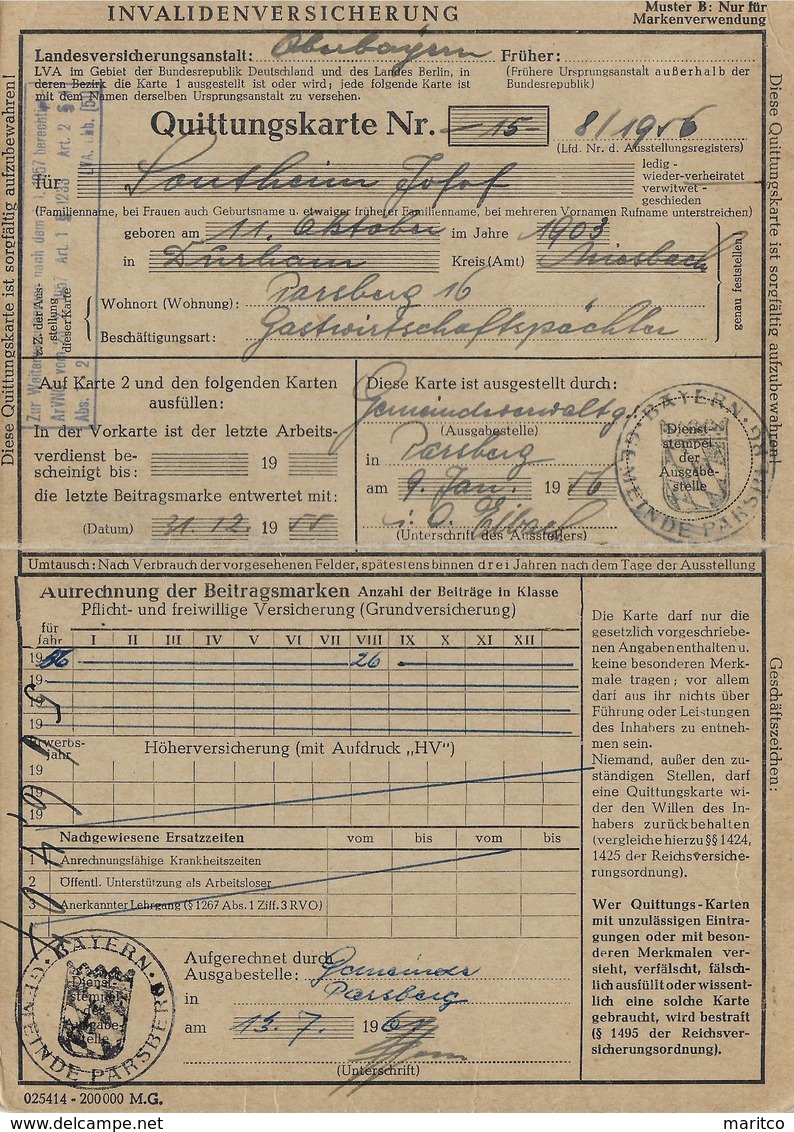 INVALIDENVERSICHERUNG
Muster B: Nur für
Markenverwendung
Landesversicherungsanstalt: Oberbayern Früher:
LVA im Gebiet der Bundesrepublik Deutschland und des Landes Berlin, in
deren Bezirk die Karte 1 ausgestellt ist oder wird; jede folgende Karte ist
mit dem Namen derselben Ursprungsanstalt zu versehen.
(Frühere Ursprungsanstalt außerhalb der
Bundesrepublik)
Quittungskarte Nr. -15- 8/1956
(Lfd. Nr. d. Ausstellungsregisters)
für Sontheim Josef
ledig -
wieder-verheiratet
verwitwet -
geschieden
(Familienname, bei Frauen auch Geburtsname u. etwaiger früherer Familienname, bei mehreren Vornamen Rufname unterstreichen)
geboren am 11. Oktober im Jahre 1903
in Dürham Kreis (Amt) Miesbach
genau feststellen
z. Z. der Aus-
stellung
dieser Karte
Wohnort (Wohnung): Parsberg 16
Beschäftigungsart: Gastwirtschaftspächter
Diese Quittungskarte ist sorgfältig aufzubewahren!
Diese Quittungskarte ist sorgfältig aufzubewahren!
Auf Karte 2 und den folgenden Karten
ausfüllen:
In der Vorkarte ist der letzte Arbeits-
verdienst be-
scheinigt bis: 19
die letzte Beitragsmarke entwertet mit:
(Datum) 31.12. 19 55
Diese Karte ist ausgestellt durch:
Gemeindeverwaltg.
(Ausgabestelle)
in Parsberg
am 9. Jan. 19 56
(Unterschrift des Ausstellers)
Dienst-
stempel
der
Ausgabe-
stelle
BAYERN · GEMEINDE PARSBERG
Umtausch: Nach Verbrauch der vorgesehenen Felder, spätestens binnen drei Jahren nach dem Tage der Ausstellung
Aufrechnung der Beitragsmarken Anzahl der Beiträge in Klasse
Pflicht- und freiwillige Versicherung (Grundversicherung)
für
Jahr I II III IV V VI VII VIII IX X XI XII
19 56 26
19
19
19
Erwerbs-
jahr
Höherversicherung (mit Aufdruck „HV")
19
19
19
Nachgewiesene Ersatzzeiten vom bis vom bis
1 Anrechnungsfähige Krankheitszeiten
2 Öffentl. Unterstützung als Arbeitsloser
3 Anerkannter Lehrgang (§ 1267 Abs. 1 Ziff. 3 RVO)
Aufgerechnet durch
Ausgabestelle: Gemeinde
in Parsberg
am 13.7. 1961
(Unterschrift)
Dienst-
stempel
der
Ausgabe-
stelle
BAYERN · GEMEINDE PARSBERG
Die Karte darf nur die
gesetzlich vorgeschriebe-
nen Angaben enthalten u.
keine besonderen Merk-
male tragen; vor allem
darf aus ihr nichts über
Führung oder Leistungen
des Inhabers zu entneh-
men sein.
Niemand, außer den zu-
ständigen Stellen, darf
eine Quittungskarte wi-
der den Willen des In-
habers zurückbehalten
(vergleiche hierzu §§ 1424,
1425 der Reichsversiche-
rungsordnung).
Wer Quittungs-Karten
mit unzulässigen Eintra-
gungen oder mit beson-
deren Merkmalen ver-
sieht, verfälscht, fälsch-
lich ausfüllt oder wissent-
lich eine solche Karte
gebraucht, wird bestraft
(§ 1495 der Reichsver-
sicherungsordnung).
Geschäftszeichen:
025414 - 200000 M.G.
maritco